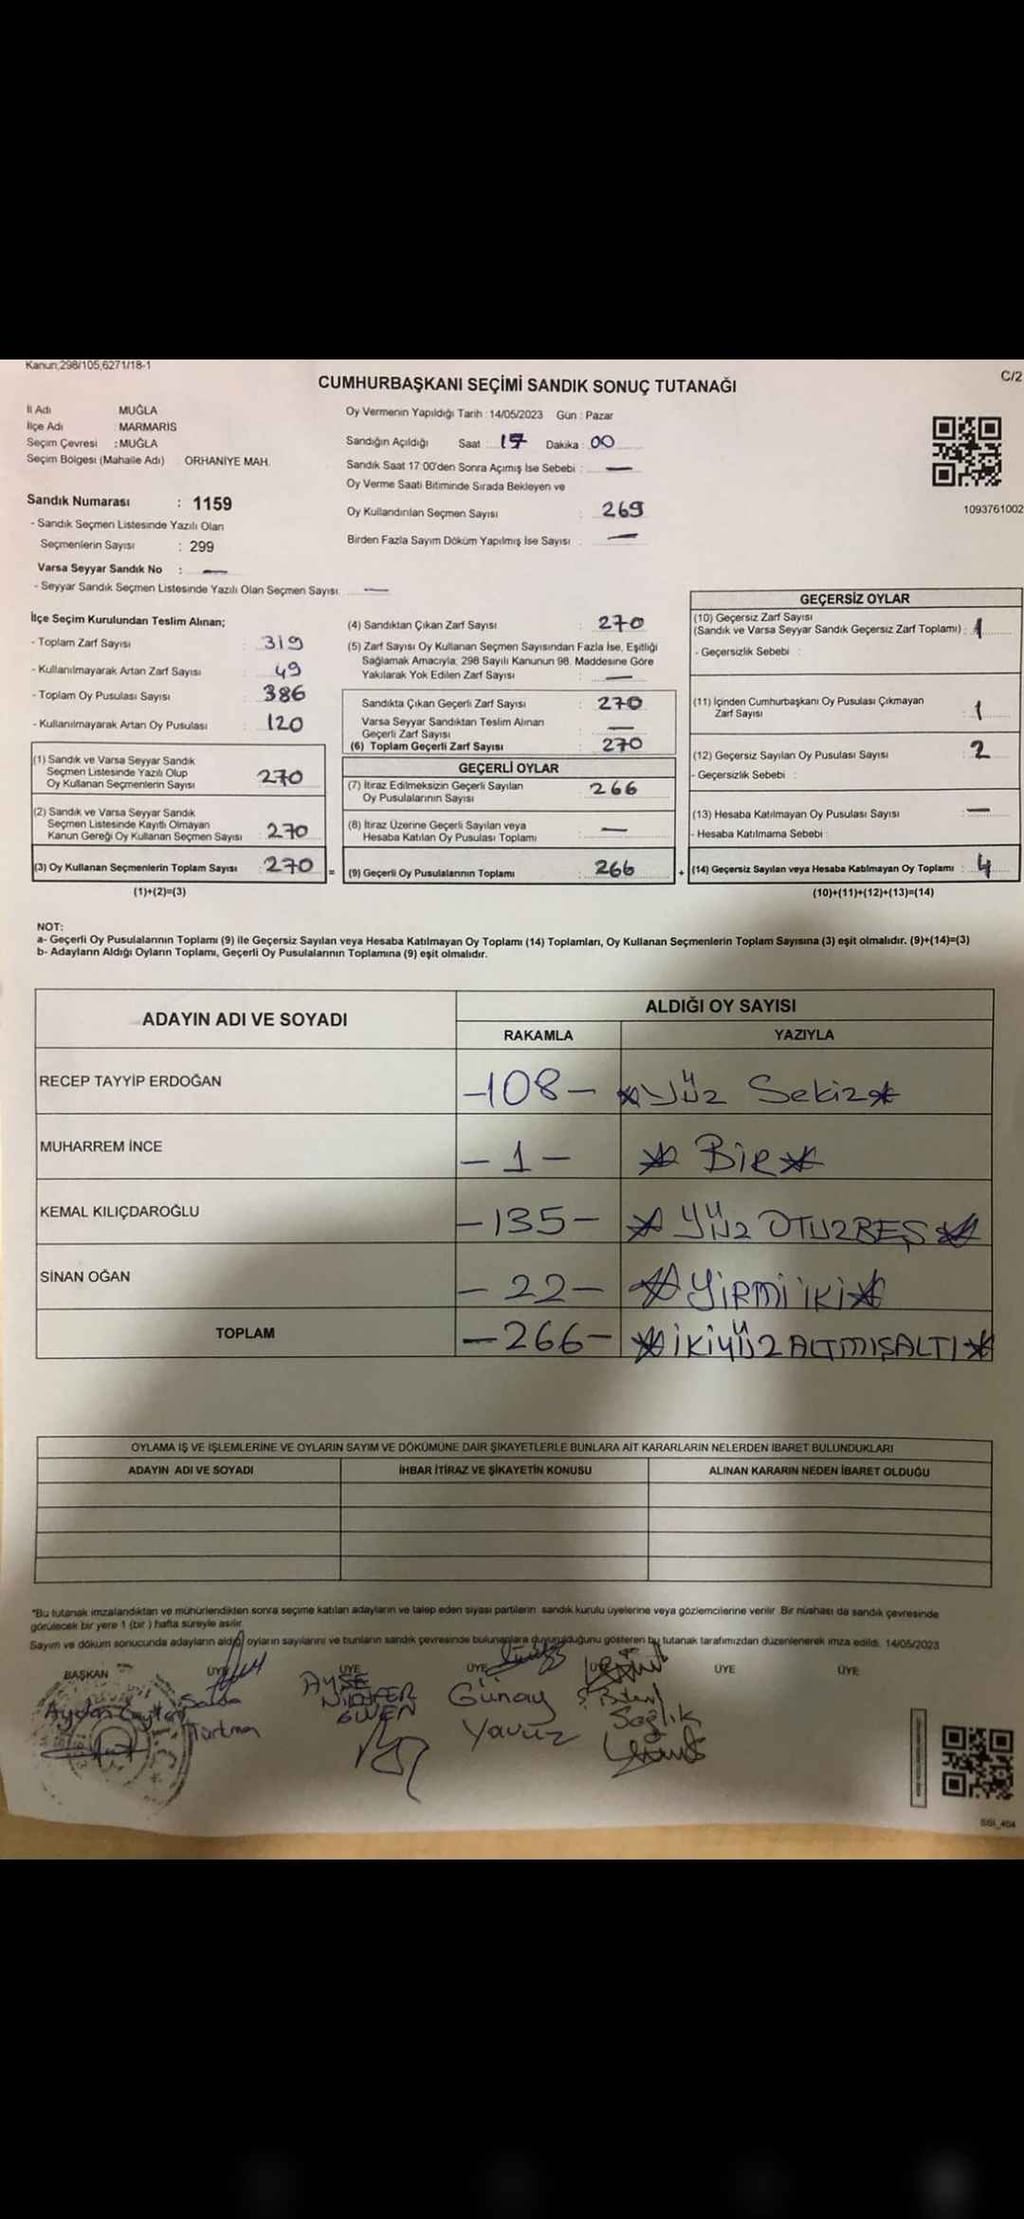 Kanun;298/105,6271/18-1
C/2
CUMHURBAŞKANI SEÇİMİ SANDIK SONUÇ TUTANAĞI
İl Adı MUĞLA
İlçe Adı : MARMARİS
Seçim Çevresi : MUĞLA
Seçim Bölgesi (Mahalle Adı) ORHANİYE MAH.
Sandık Numarası : 1159
- Sandık Seçmen Listesinde Yazılı Olan
Seçmenlerin Sayısı : 299
Varsa Seyyar Sandık No : —
- Seyyar Sandık Seçmen Listesinde Yazılı Olan Seçmen Sayısı —
Oy Vermenin Yapıldığı Tarih : 14/05/2023 Gün : Pazar
Sandığın Açıldığı Saat 17 Dakika : 00
Sandık Saat 17:00'den Sonra Açımış İse Sebebi : —
Oy Verme Saati Bitiminde Sırada Bekleyen ve
Oy Kullandırılan Seçmen Sayısı : 269
Birden Fazla Sayım Döküm Yapılmış İse Sayısı : —
1093761002
İlçe Seçim Kurulundan Teslim Alınan;
- Toplam Zarf Sayısı : 319
- Kullanılmayarak Artan Zarf Sayısı : 49
- Toplam Oy Pusulası Sayısı : 386
- Kullanılmayarak Artan Oy Pusulası : 120
(1) Sandık ve Varsa Seyyar Sandık
Seçmen Listesinde Yazılı Olup
Oy Kullanan Seçmenlerin Sayısı : 270
(2) Sandık ve Varsa Seyyar Sandık
Seçmen Listesinde Kayıtlı Olmayan
Kanun Gereği Oy Kullanan Seçmen Sayısı : 270
(3) Oy Kullanan Seçmenlerin Toplam Sayısı : 270 =
(1)+(2)=(3)
(4) Sandıktan Çıkan Zarf Sayısı : 270
(5) Zarf Sayısı Oy Kullanan Seçmen Sayısından Fazla İse, Eşitliği
Sağlamak Amacıyla; 298 Sayılı Kanunun 98. Maddesine Göre
Yakılarak Yok Edilen Zarf Sayısı : —
Sandıkta Çıkan Geçerli Zarf Sayısı : 270
Varsa Seyyar Sandıktan Teslim Alınan
Geçerli Zarf Sayısı : —
(6) Toplam Geçerli Zarf Sayısı : 270
GEÇERLİ OYLAR
(7) İtiraz Edilmeksizin Geçerli Sayılan
Oy Pusulalarının Sayısı : 266
(8) İtiraz Üzerine Geçerli Sayılan veya
Hesaba Katılan Oy Pusulası Toplamı : —
(9) Geçerli Oy Pusulalarının Toplamı : 266 +
GEÇERSİZ OYLAR
(10) Geçersiz Zarf Sayısı
(Sandık ve Varsa Seyyar Sandık Geçersiz Zarf Toplamı) : 1
- Geçersizlik Sebebi :
(11) İçinden Cumhurbaşkanı Oy Pusulası Çıkmayan
Zarf Sayısı : 1
(12) Geçersiz Sayılan Oy Pusulası Sayısı : 2
- Geçersizlik Sebebi :
(13) Hesaba Katılmayan Oy Pusulası Sayısı : —
- Hesaba Katılmama Sebebi :
(14) Geçersiz Sayılan veya Hesaba Katılmayan Oy Toplamı : 4
(10)+(11)+(12)+(13)=(14)
NOT:
a- Geçerli Oy Pusulalarının Toplamı (9) ile Geçersiz Sayılan veya Hesaba Katılmayan Oy Toplamı (14) Toplamları, Oy Kullanan Seçmenlerin Toplam Sayısına (3) eşit olmalıdır. (9)+(14)=(3)
b- Adayların Aldığı Oyların Toplamı, Geçerli Oy Pusulalarının Toplamına (9) eşit olmalıdır.
ADAYIN ADI VE SOYADI
ALDIĞI OY SAYISI
RAKAMLA YAZIYLA
RECEP TAYYİP ERDOĞAN -108- *Yüz Sekiz*
MUHARREM İNCE -1- *BİR*
KEMAL KILIÇDAROĞLU -135- *YÜZ OTUZBEŞ*
SİNAN OĞAN -22- *YİRMİ İKİ*
TOPLAM -266- *İKİYÜZALTMIŞALTI*
OYLAMA İŞ VE İŞLEMLERİNE VE OYLARIN SAYIM VE DÖKÜMÜNE DAİR ŞİKAYETLERLE BUNLARA AİT KARARLARIN NELERDEN İBARET BULUNDUKLARI
ADAYIN ADI VE SOYADI İHBAR İTİRAZ VE ŞİKAYETİN KONUSU ALINAN KARARIN NEDEN İBARET OLDUĞU
*Bu tutanak imzalandıktan ve mühürlendikten sonra seçime katılan adayların ve talep eden siyasi partilerin sandık kurulu üyelerine veya gözlemcilerine verilir. Bir nüshası da sandık çevresinde
görülecek bir yere 1 (bir) hafta süreyle asılır.
Sayım ve döküm sonucunda adayların aldığı oyların sayılarını ve bunların sandık çevresinde bulunanlara duyurulduğunu gösteren bu tutanak tarafımızdan düzenlenerek imza edildi. 14/05/2023
BAŞKAN ÜYE ÜYE ÜYE ÜYE ÜYE ÜYE
AYŞE
NİLÜFER
GÜVEN
Günay
Yavuz
Sağlık